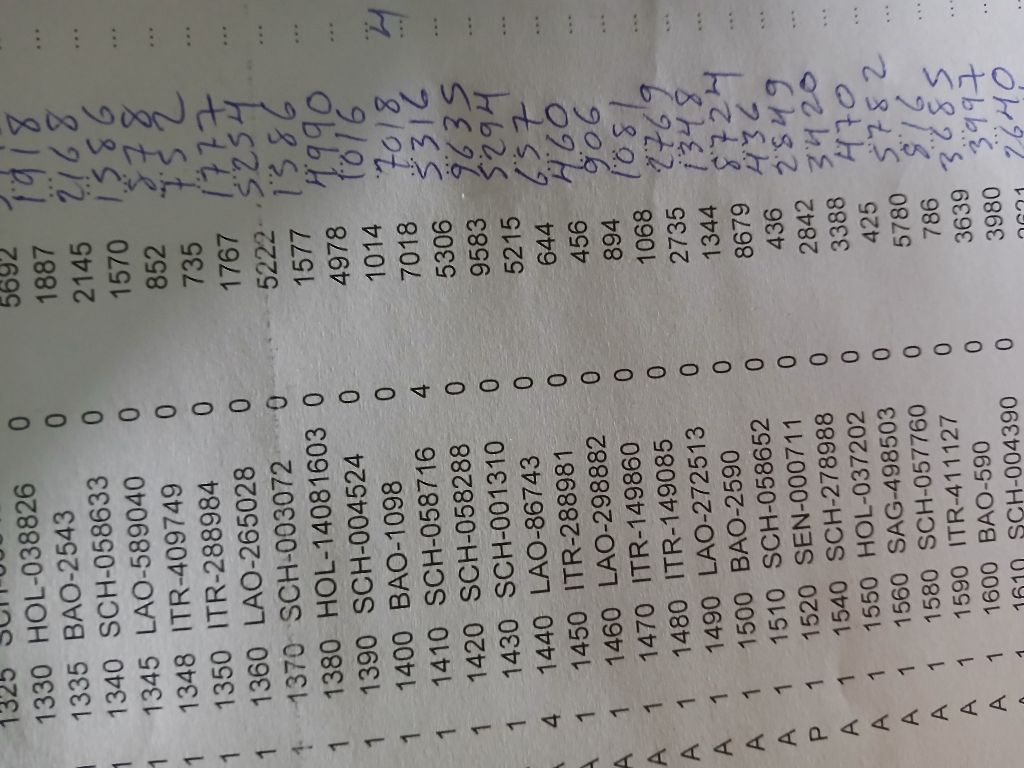 1325
1330 HOL-038826 0 5692
1 1335 BAO-2543 0 1887 1918 ...
1 1340 SCH-058633 0 2145 2168 ...
1 1345 LAO-589040 0 1570 1586 ...
1 1348 ITR-409749 0 852 878 ...
1 1350 ITR-288984 0 735 752 ...
1 1360 LAO-265028 0 1767 1777 ...
1 1370 SCH-003072 0 5222 5254 ...
1 1380 HOL-14081603 0 1577 1586 ...
1 1390 SCH-004524 0 4978 4990 ...
1 1400 BAO-1098 0 1014 1016 ...
1 1410 SCH-058716 4 7018 7018 4
1 1420 SCH-058288 0 5306 5316 ...
1 1430 SCH-001310 0 9583 9635 ...
4 1440 LAO-86743 0 5215 5294 ...
A 1 1450 ITR-288981 0 644 657 ...
A 1 1460 LAO-298882 0 456 460 ...
A 1 1470 ITR-149860 0 894 906 ...
A 1 1480 ITR-149085 0 1068 1081 ...
A 1 1490 LAO-272513 0 2735 2769 ...
A 1 1500 BAO-2590 0 1344 1348 ...
A 1 1510 SCH-058652 0 8679 8724 ...
P 1 1520 SEN-000711 0 436 436 ...
A 1 1540 SCH-278988 0 2842 2849 ...
A 1 1550 HOL-037202 0 3388 3420 ...
A 1 1560 SAG-498503 0 425 470 ...
A 1 1580 SCH-057760 0 5780 5782 ...
A 1 1590 ITR-411127 0 786 816 ...
A 1 1600 BAO-590 0 3639 3685 ...
A 1 1610 SCH-004390 0 3980 3997 ...
2640